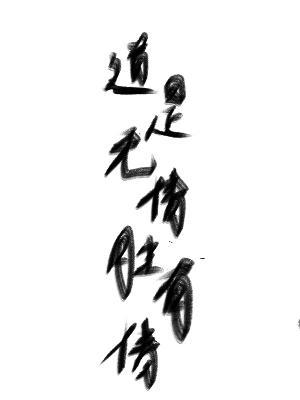 道是无情胜有情